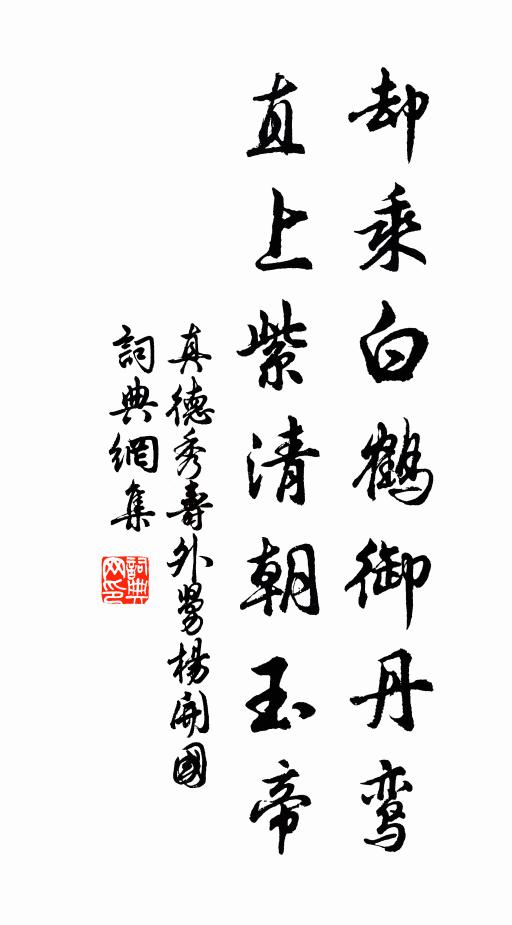 却乘白鹤御丹鸾
直上紫清朝玉帝
真德秀壽外舅楊開國
詞典網集
詞典網印